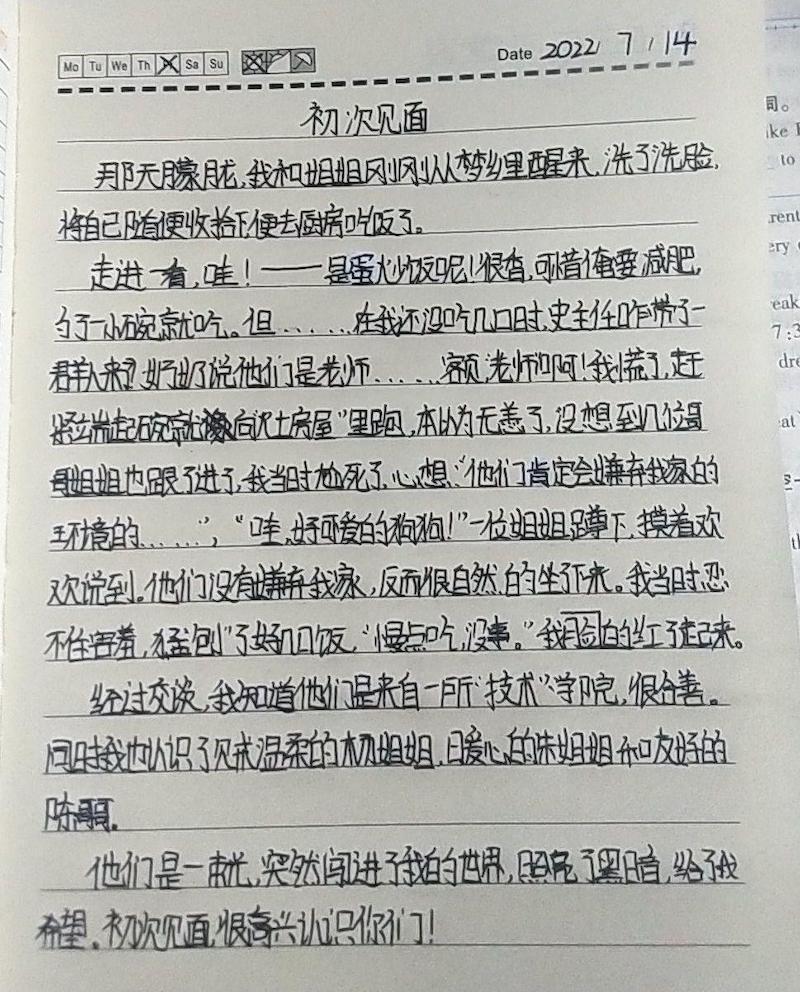 Mo Tu We Th Fr Sa Su
Date 2022 / 7 / 14
初次见面
那天朦胧,我和姐姐刚刚从梦乡里醒来,洗了洗脸,
将自己随便收拾下便去厨房吃饭了。
走进一看,哇!——是蛋炒饭呢!很香,可惜俺要减肥,
勺了一小碗就吃。但......在我还没吃几口时,史主任咋带了一
群人来?好奶说他们是老师......额,老师啊!我慌了,赶
紧端起碗就向"沙土房屋"里跑,本以为无恙了,没想到几位哥
哥姐姐也跟了进了,我当时尬死了,心想:"他们肯定会嫌弃我家的
环境的......","哇,好可爱的狗狗!"一位姐姐蹲下,摸着欢
欢说到。他们没有嫌弃我家,反而很自然的坐了下来。我当时忍
不住害羞,猛"刨"了好几口饭,"慢点吃,没事。"我脸白的红了起来。
经过交谈,我知道他们是来自一所"技术"学院,很和善。
同时我也认识了温柔的杨姐姐,暖心的朱姐姐和友好的
陈哥。
他们是一束光,突然闯进了我的世界,照亮了黑暗,给了我
希望。初次见面,很高兴认识你们!
同。
ike
to
rent
ery
eak
7:3
dre
at